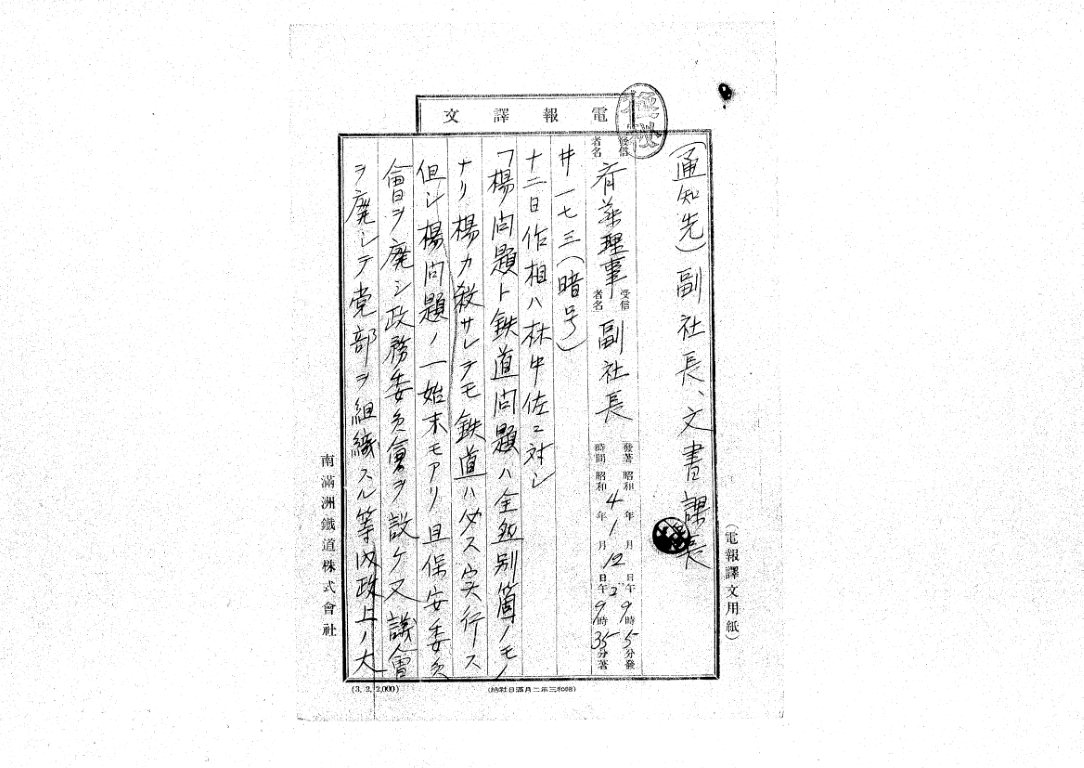 電報譯文
極秘
(通知先)副社長、文書課長
發信者名 斉藤理事 受信者名 副社長 發著時間 昭和4年1月12日午 9時5分發
昭和 年 月 日午 9時35分著
#一七三(暗号)
十二日作相ハ林中佐ニ対シ
「楊問題ト鉄道問題ハ全然別箇ノモノ
ナリ楊カ殺サレテモ鉄道ハ必ス実行ス
但シ楊問題ノ一始末モアリ且保安委員
會ヲ廃シ政務委員會ヲ設ケ又議會
ヲ廃シテ党部ヲ組織スル等内政上ノ大
南滿洲鐵道株式會社
(電報譯文用紙)
(3. 2. 2,000)